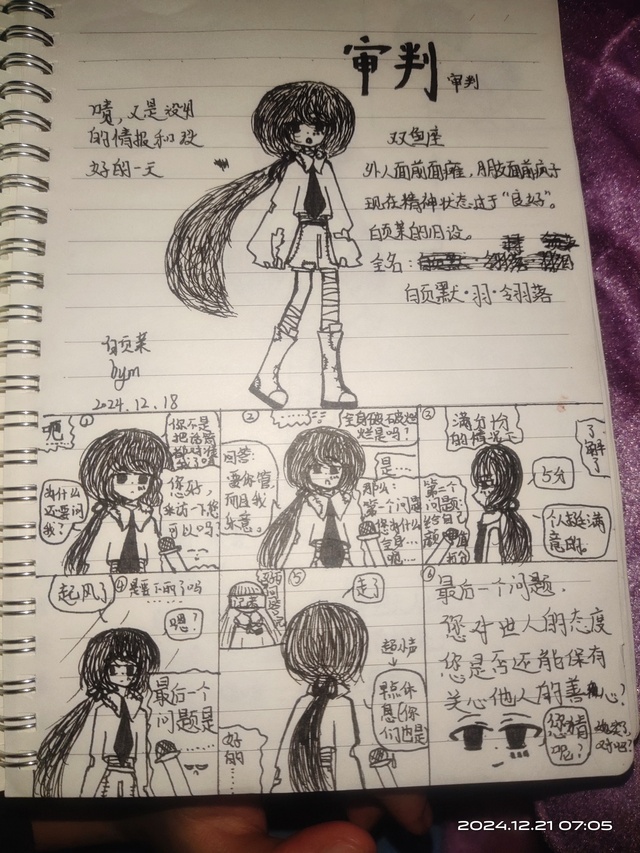 审判
审判
啧，又是没用
的情报和双
好的一天
双鱼座
外人面前面瘫，朋友面前疯子
现在精神状态过于“良好”。
白页菜的旧设。
全名：
白页默·羽·翎羽落
白页菜
bym
2024.12.18
①
呃
你不是
把话筒
您好，
采访一下您
可以吗？
为什么
还要问
我？
②
全身破破烂
烂是吗？
回答：
要你管，
而且我
乐意。
是…
那么：
第一个问题
您为什么
全身…
呃…
满分十分
的情况下
了解了
5分
第二个
问题：
给自己
打分
个人挺满
意的。
起风了
④
是要下雨了吗
嗯？
最后一个
问题是
……
⑤
走了
超小声
早点休
息(你
们也是
好的
……
⑥
最后一个问题，
您对世人的态度
您是否还能保有
关心他人的善心？
您猜
呢？
2024.12.21 07:05